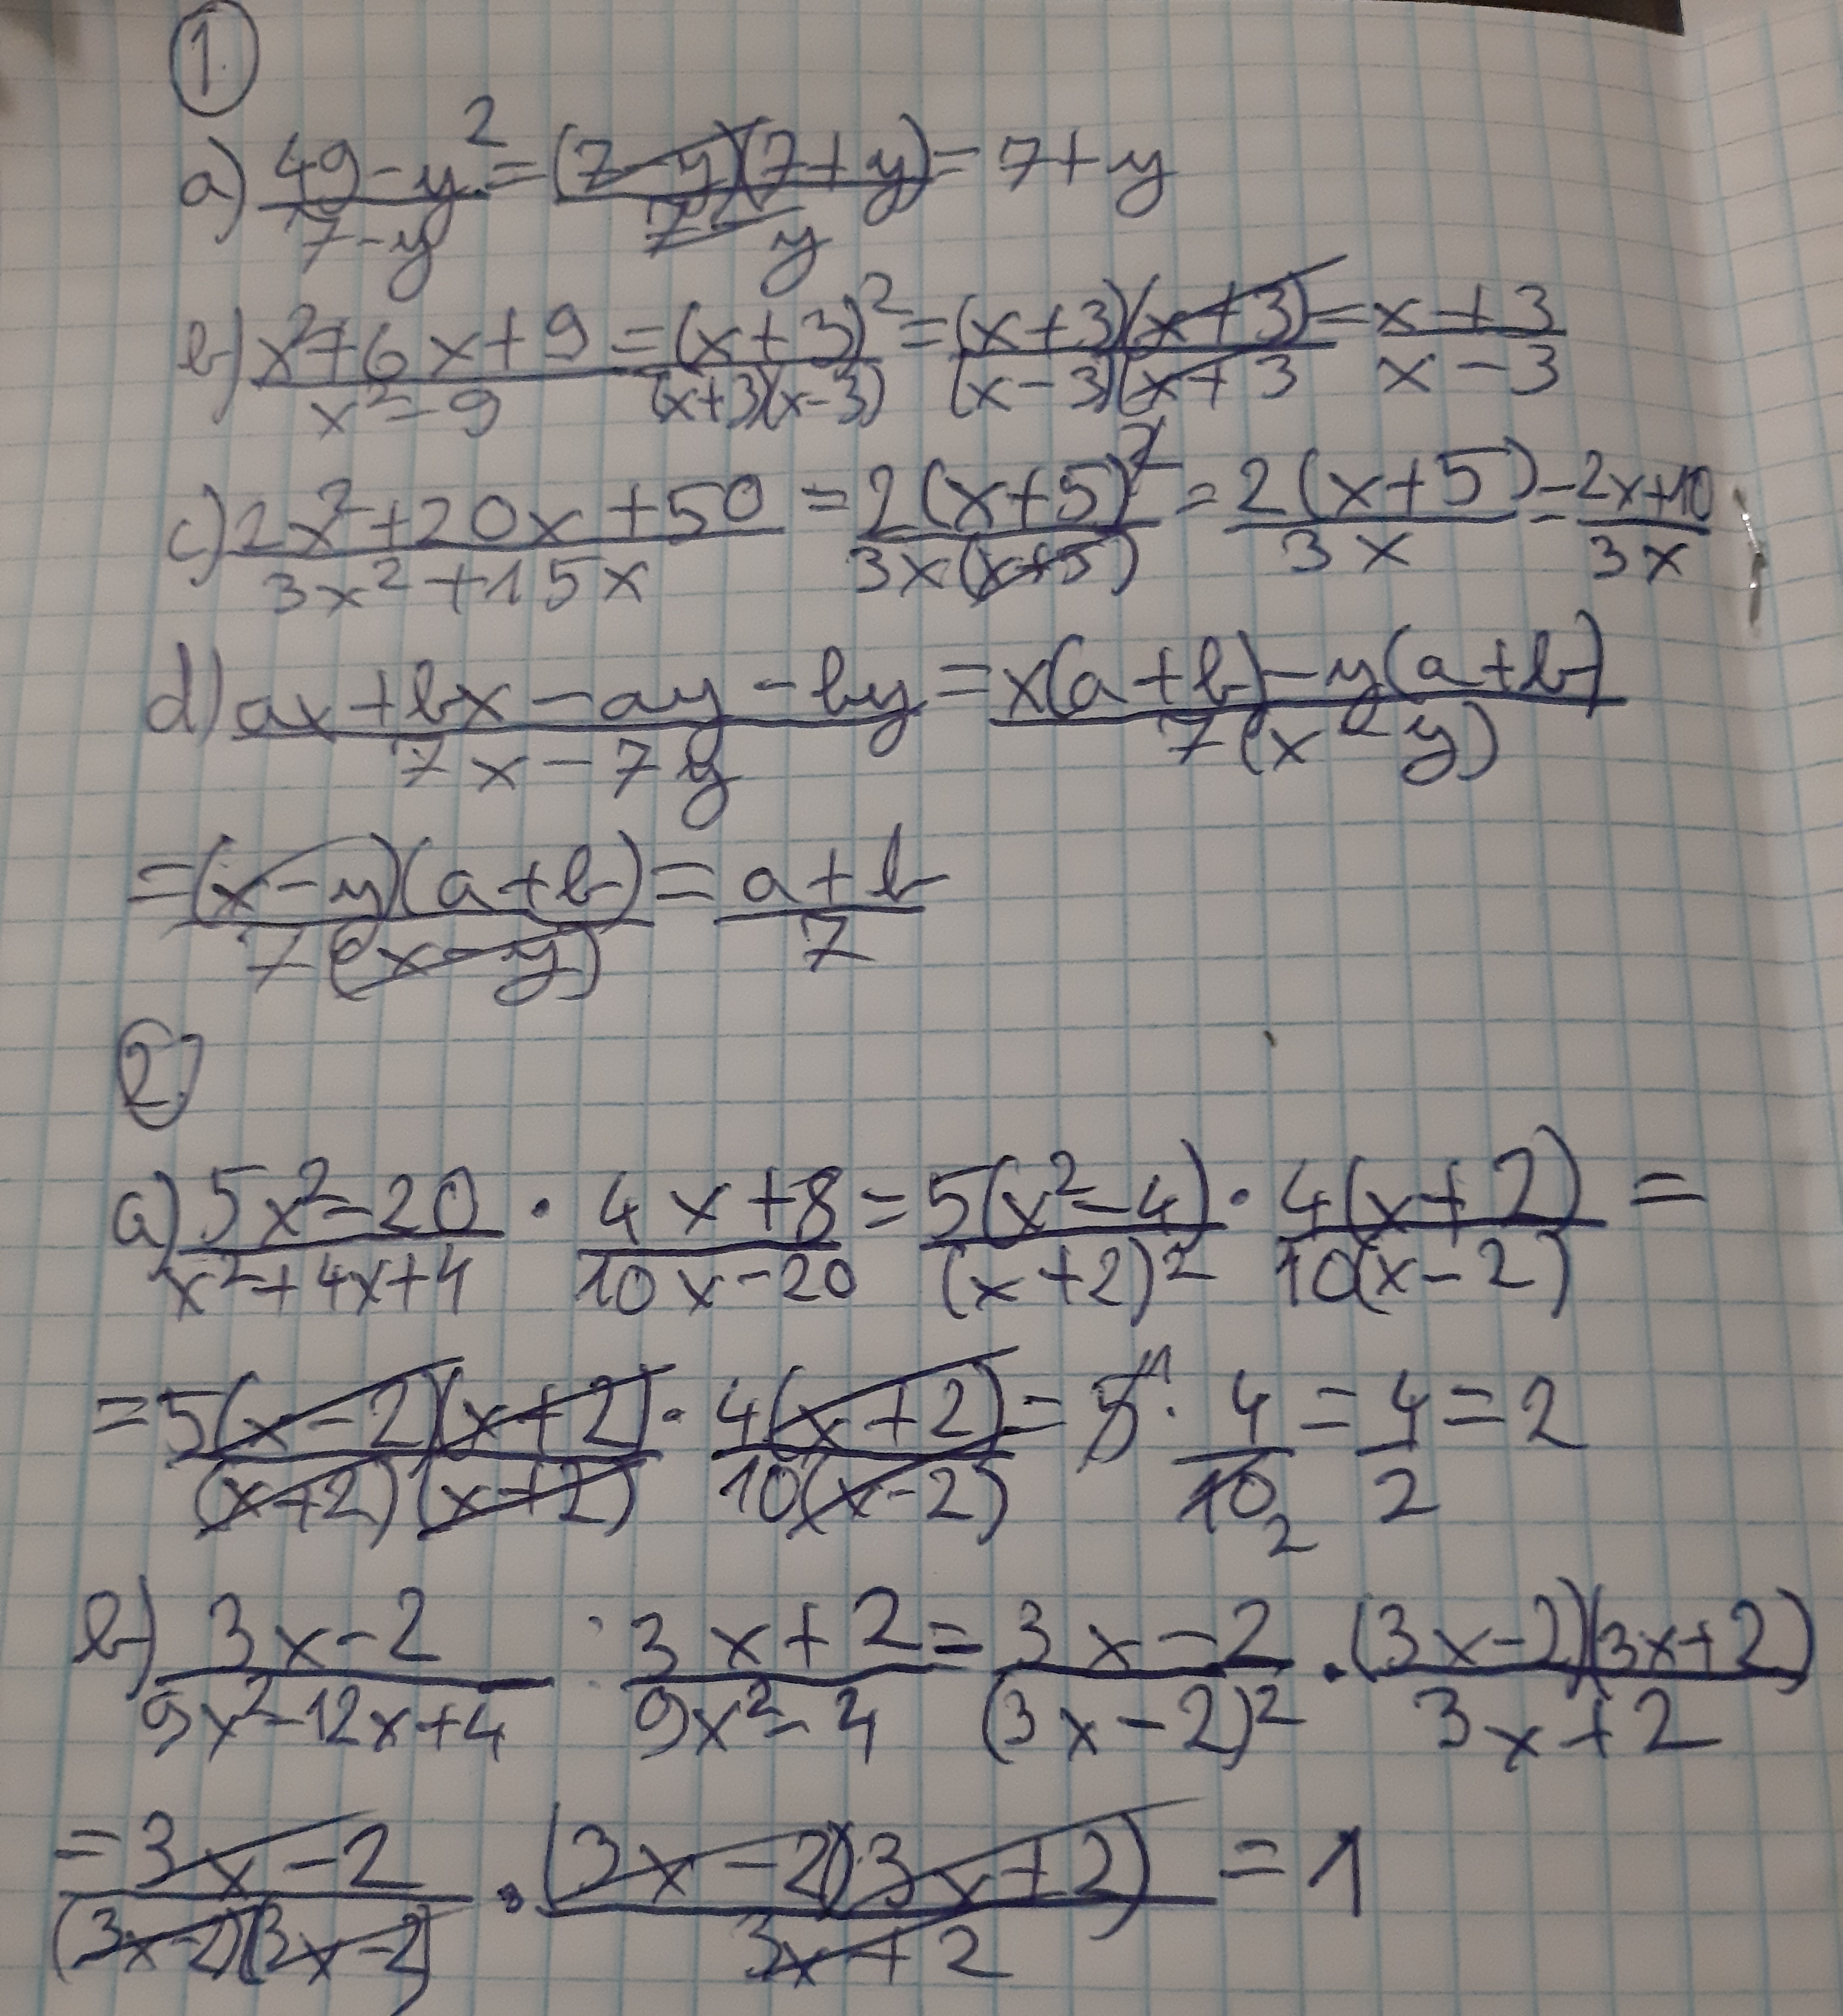 1.
a) (49-y²)/(7-y) = ((7-y)(7+y))/(7-y) = 7+y
b) (x²+6x+9)/(x²-9) = (x+3)²/((x+3)(x-3)) = ((x+3)(x+3))/((x-3)(x+3) = (x+3)/(x-3)
c) (2x²+20x+50)/(3x²+15x) = (2(x+5)²)/(3x(x+5)) = (2(x+5))/(3x) = (2x+10)/(3x)
d) (ax+bx-ay-by)/(7x-7y) = (x(a+b)-y(a+b))/(7(x-y))
= ((x-y)(a+b))/(7(x-y)) = (a+b)/7
2.
a) (5x²-20)/(x²+4x+4) · (4x+8)/(10x-20) = (5(x²-4))/((x+2)²) · (4(x+2))/(10(x-2)) =
= (5(x-2)(x+2))/((x+2)(x+2)) · (4(x+2))/(10(x-2)) = 5 1 · 4/10 2 = 4/2 = 2
b) (3x-2)/(9x²-12x+4) : (3x+2)/(9x²-4) = (3x-2)/((3x-2)²) · ((3x-2)(3x+2))/(3x+2)
= (3x-2)/((3x-2)(3x-2)) · ((3x-2)(3x+2))/(3x+2) = 1